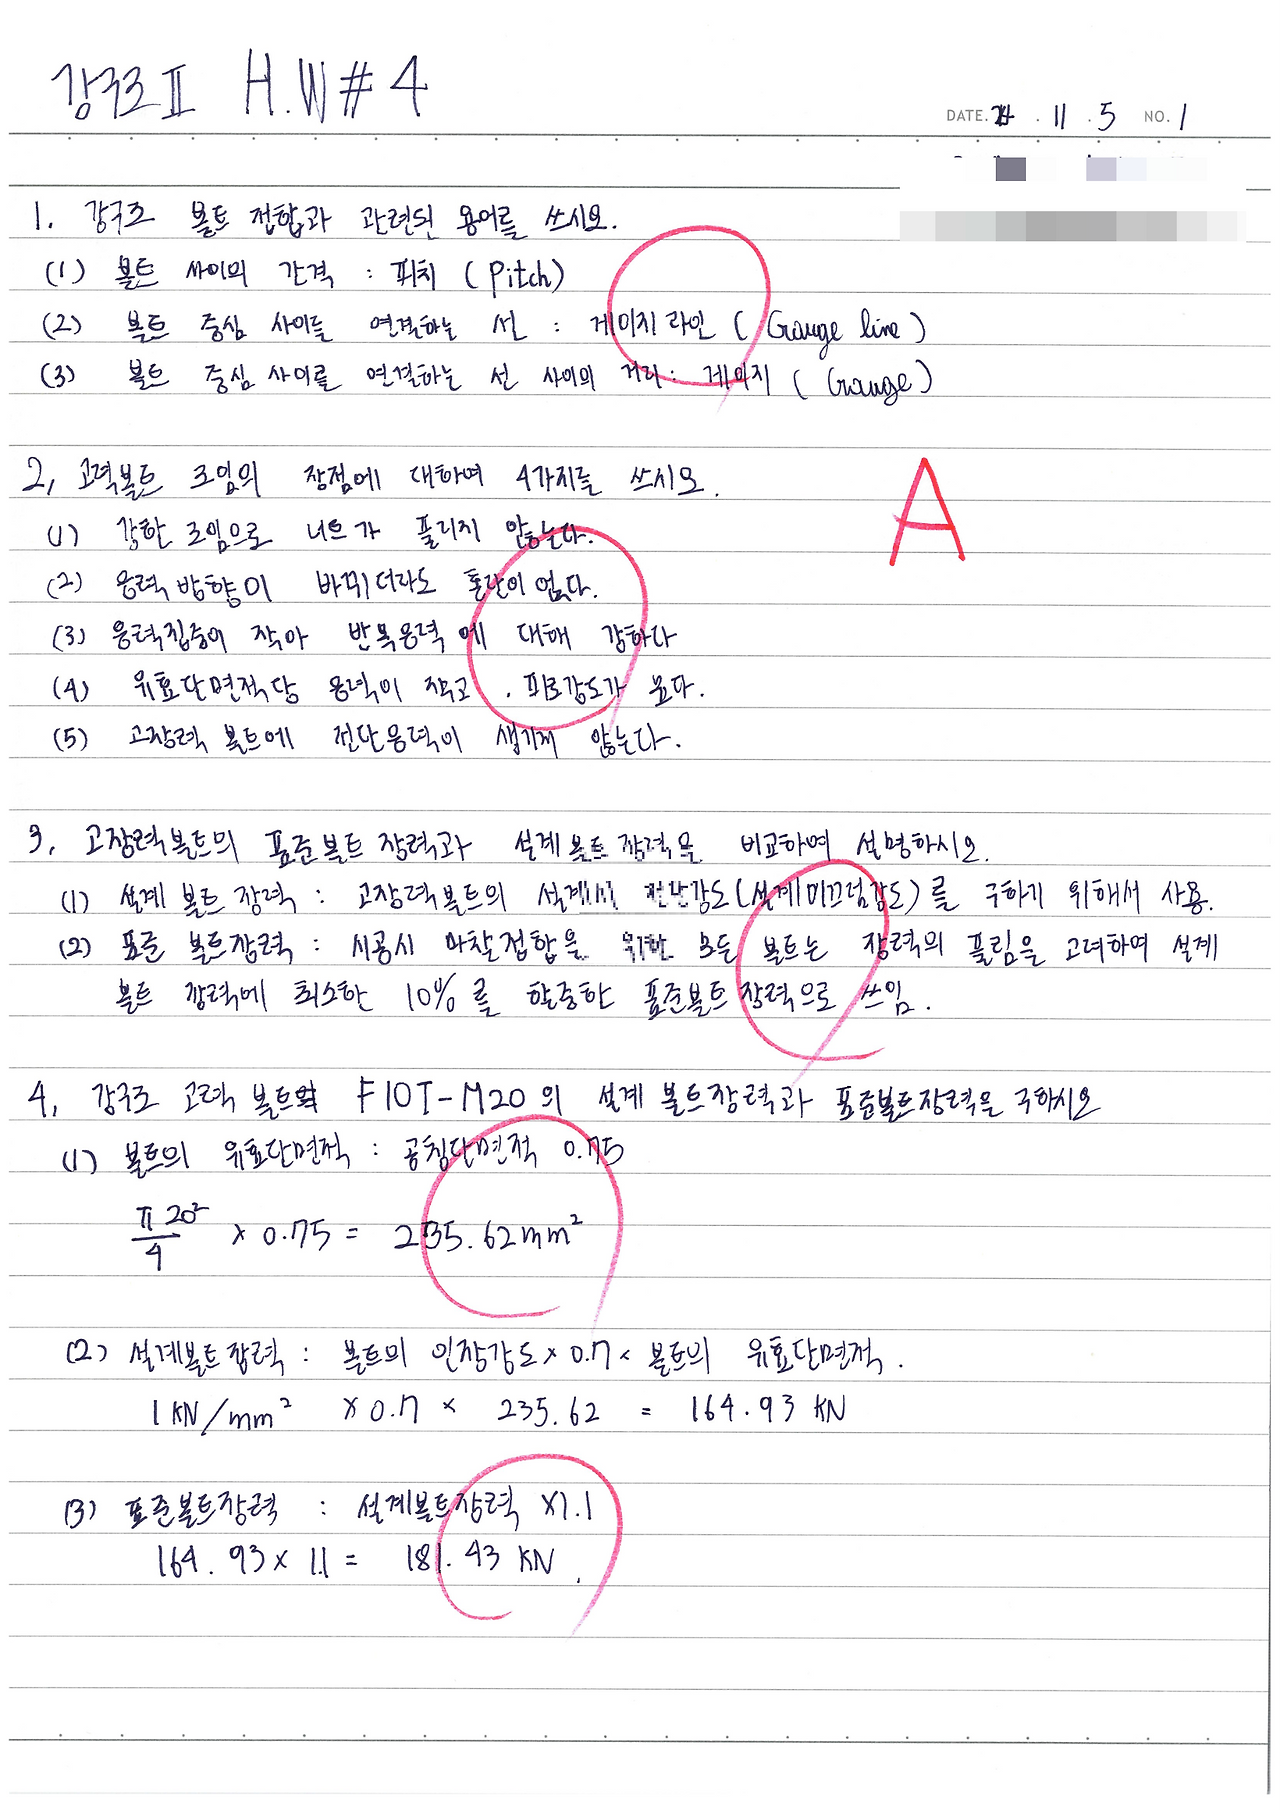 강구조 II H.W #4
DATE. 11 . 5 NO. 1
1. 강구조 볼트 접합과 관련된 용어를 쓰시오.
(1) 볼트 사이의 간격 : 피치 (Pitch)
(2) 볼트 중심 사이를 연결하는 선 : 게이지 라인 (Gauge line)
(3) 볼트 중심 사이를 연결하는 선 사이의 거리 : 게이지 (Gauge)
2. 고력볼트 조임의 장점에 대하여 4가지를 쓰시오.
A
(1) 강한 조임으로 너트가 풀리지 않는다.
(2) 응력 방향이 바뀌더라도 혼란이 없다.
(3) 응력집중이 작아 반복응력에 대해 강하다
(4) 유효단면적당 응력이 작고, 피로강도가 높다.
(5) 고장력 볼트에 전단응력이 생기지 않는다.
3. 고장력볼트의 표준볼트 장력과 설계볼트 장력을 비교하여 설명하시오.
(1) 설계 볼트 장력 : 고장력볼트의 설계시 전단강도(설계미끄럼강도)를 구하기 위해서 사용.
(2) 표준 볼트장력 : 시공시 마찰접합을 위한 모든 볼트는 장력의 풀림을 고려하여 설계
볼트 장력에 최소한 10%를 할증한 표준볼트 장력으로 쓰임.
4. 강구조 고력 볼트 F10T-M20의 설계 볼트장력과 표준볼트장력을 구하시오
(1) 볼트의 유효단면적 : 공칭단면적 0.75
π 20²/4 × 0.75 = 235.62mm²
(2) 설계볼트 장력 : 볼트의 인장강도 × 0.7 × 볼트의 유효단면적.
1 KN/mm² × 0.7 × 235.62 = 164.93 KN
(3) 표준볼트장력 : 설계볼트장력 ×1.1
164.93 × 1.1 = 181.43 KN.